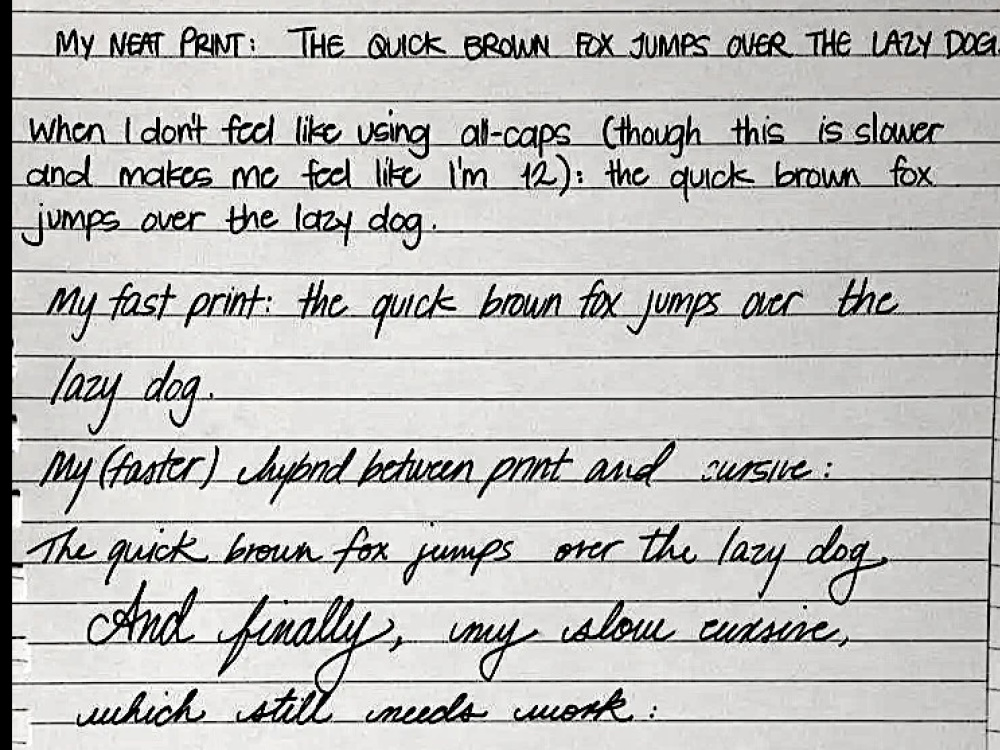 MY NEAT PRINT: THE QUICK BROWN FOX JUMPS OVER THE LAZY DOG
When I don't feel like using all-caps (though this is slower
and makes me feel like I'm 12): the quick brown fox
jumps over the lazy dog.
My fast print: the quick brown fox jumps over the
lazy dog.
My (faster) hybrid between print and cursive:
The quick brown fox jumps over the lazy dog
And finally, my slow cursive,
which still needs work: